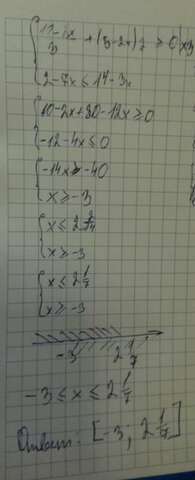 + (5-2x) 2 ≥ 0 | x3
2-7x ≤ 14-3x
10-2x+30-12x ≥ 0
-12-4x ≤ 0
-14x ≥ -40
x ≥ -3
x ≤ 2
x ≥ -3
x ≤ 2 1/7
x ≥ -3
-3 2 1/7
-3 ≤ x ≤ 2 1/7
Ответ: [-3; 2 1/7]